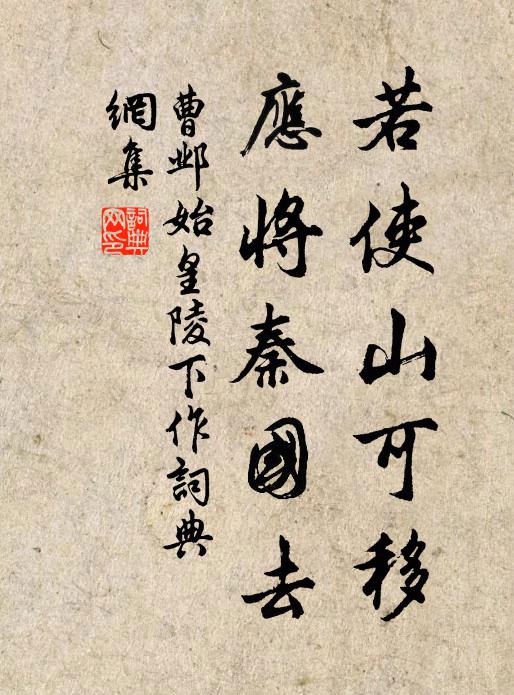 若使山可移
應將秦國去
曹邺始皇陵下作詞典
網集
詞典
网印